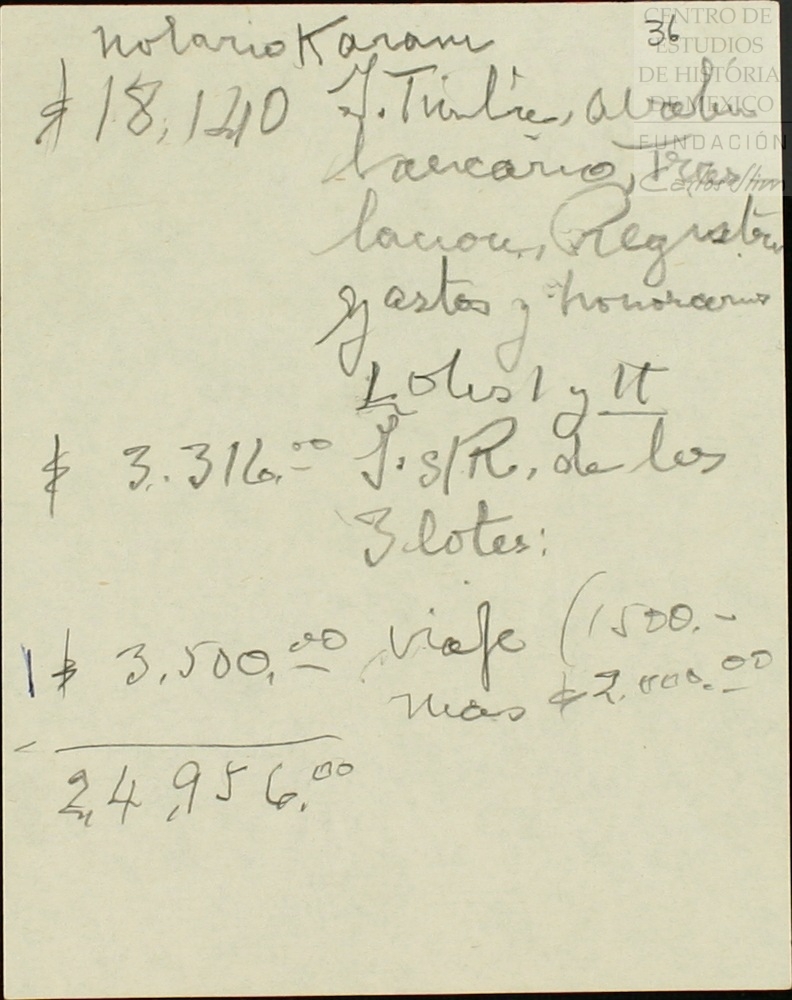 notario Karam
36
CENTRO DE
ESTUDIOS
DE HISTORIA
DE MEXICO
FUNDACIÓN
Carlos Slim
$ 18,140 I. Timbre, avaluo
bancario, Tras
lacion, Registro
gastos y honorarios
Lotes I y II
$ 3.316.00 I. s/R, de los
3 lotes:
$ 3.500.00 viaje (1500.-
mas $ 2.000.00
24,956.00